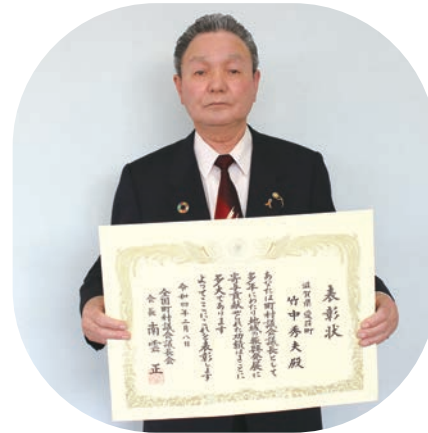 表彰状
滋賀県愛荘町
竹中秀夫 殿
あなたは町村議会議長として
多年にわたり地域の振興発展に
寄与貢献せられた功績はまことに
多大であります
よってここにこれを表彰します
令和四年二月八日
全国町村議会議長会
会長 南雲 正